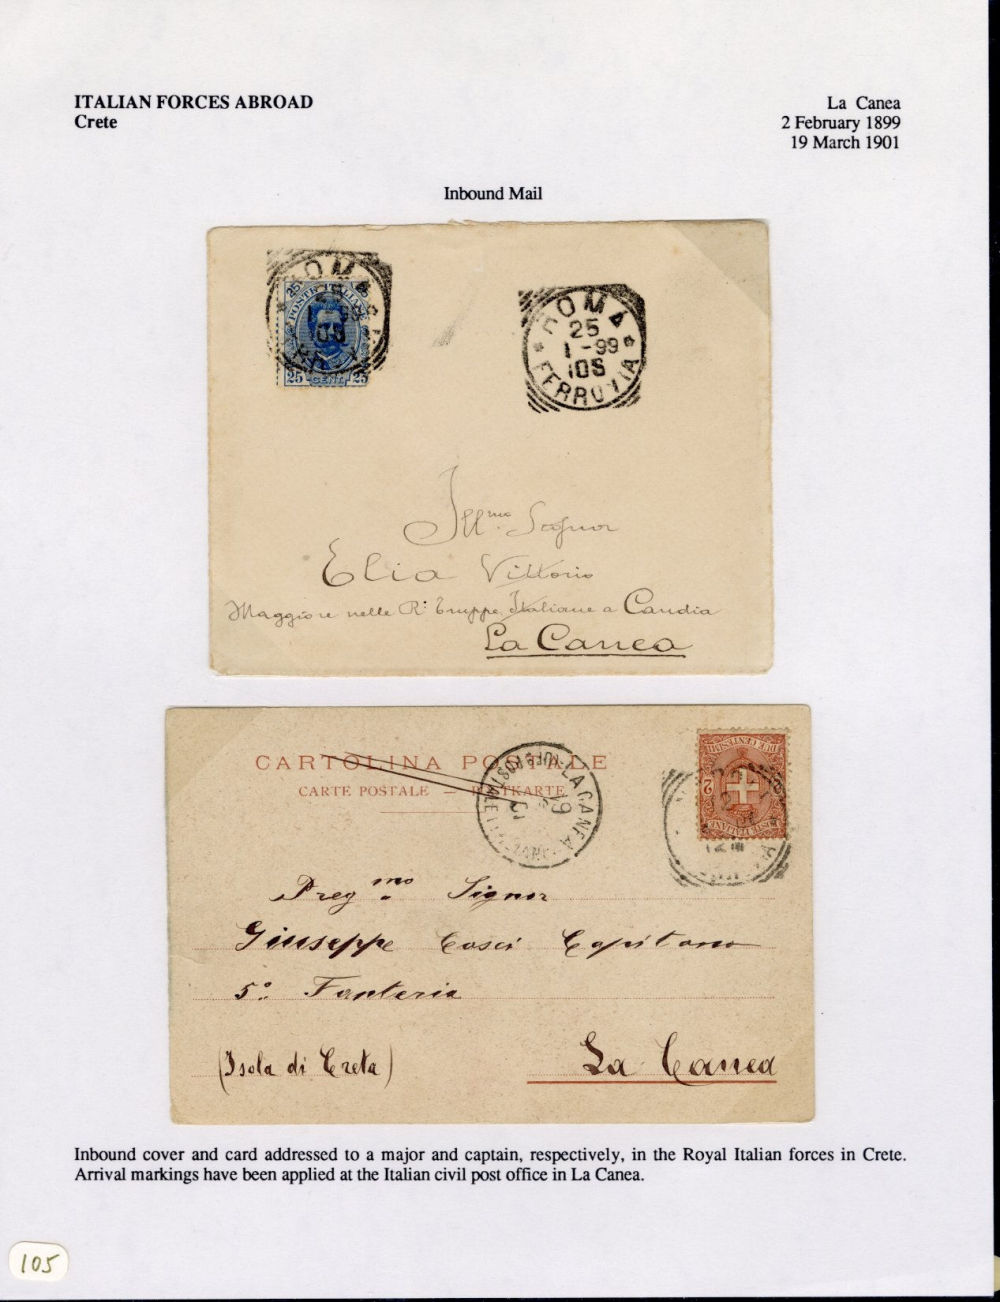 ITALIAN FORCES ABROAD
Crete
La Canea
2 February 1899
19 March 1901
Inbound Mail
25 25
POSTE ITALIANE
25 CENT. 25
ROMA
25
1 - 99
10S
FERROVIA
Ill.mo Signor
Elia Vittorio
Maggiore nelle Re: Truppe Italiane a Candia
La Canea
CARTOLINA POSTALE
CARTE POSTALE — POSTKARTE
LA CANEA
DUE CENTESIMI
2
POSTE ITALIANE
Preg.mo Signor
Giuseppe Cosci Capitano
5o. Fanteria
(Isola di Creta)
La Canea
Inbound cover and card addressed to a major and captain, respectively, in the Royal Italian forces in Crete.
Arrival markings have been applied at the Italian civil post office in La Canea.
105